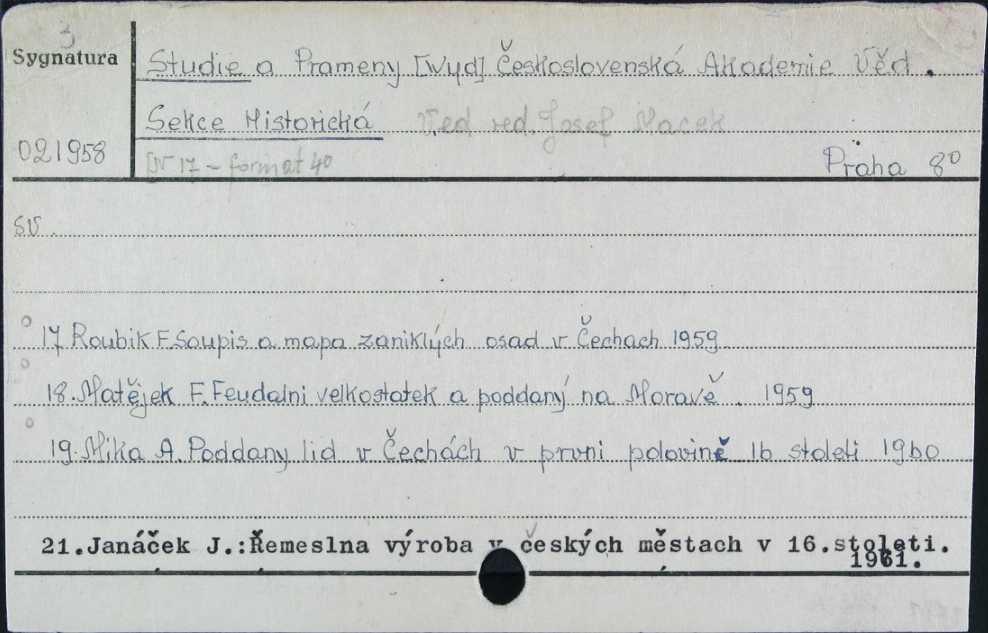 3
Sygnatura
021958
Studie a Prameny [Wyd] Československá Akademie Věd.
Sekce Historická Věd red. Josef Macek
N 17 – format 4º
Praha 8º
SV
17 Roubik F. Soupis a mapa zaniklých osad v Čechach 1959
18. Matějek F. Feudalni velkostatek a poddaný na Moravě. 1959
19. Mika A. Poddany lid v Čechách v prvni polovině 16 stoleti 1960
21. Janáček J.: Řemeslna výroba v českých městach v 16. stoleti.
1961.